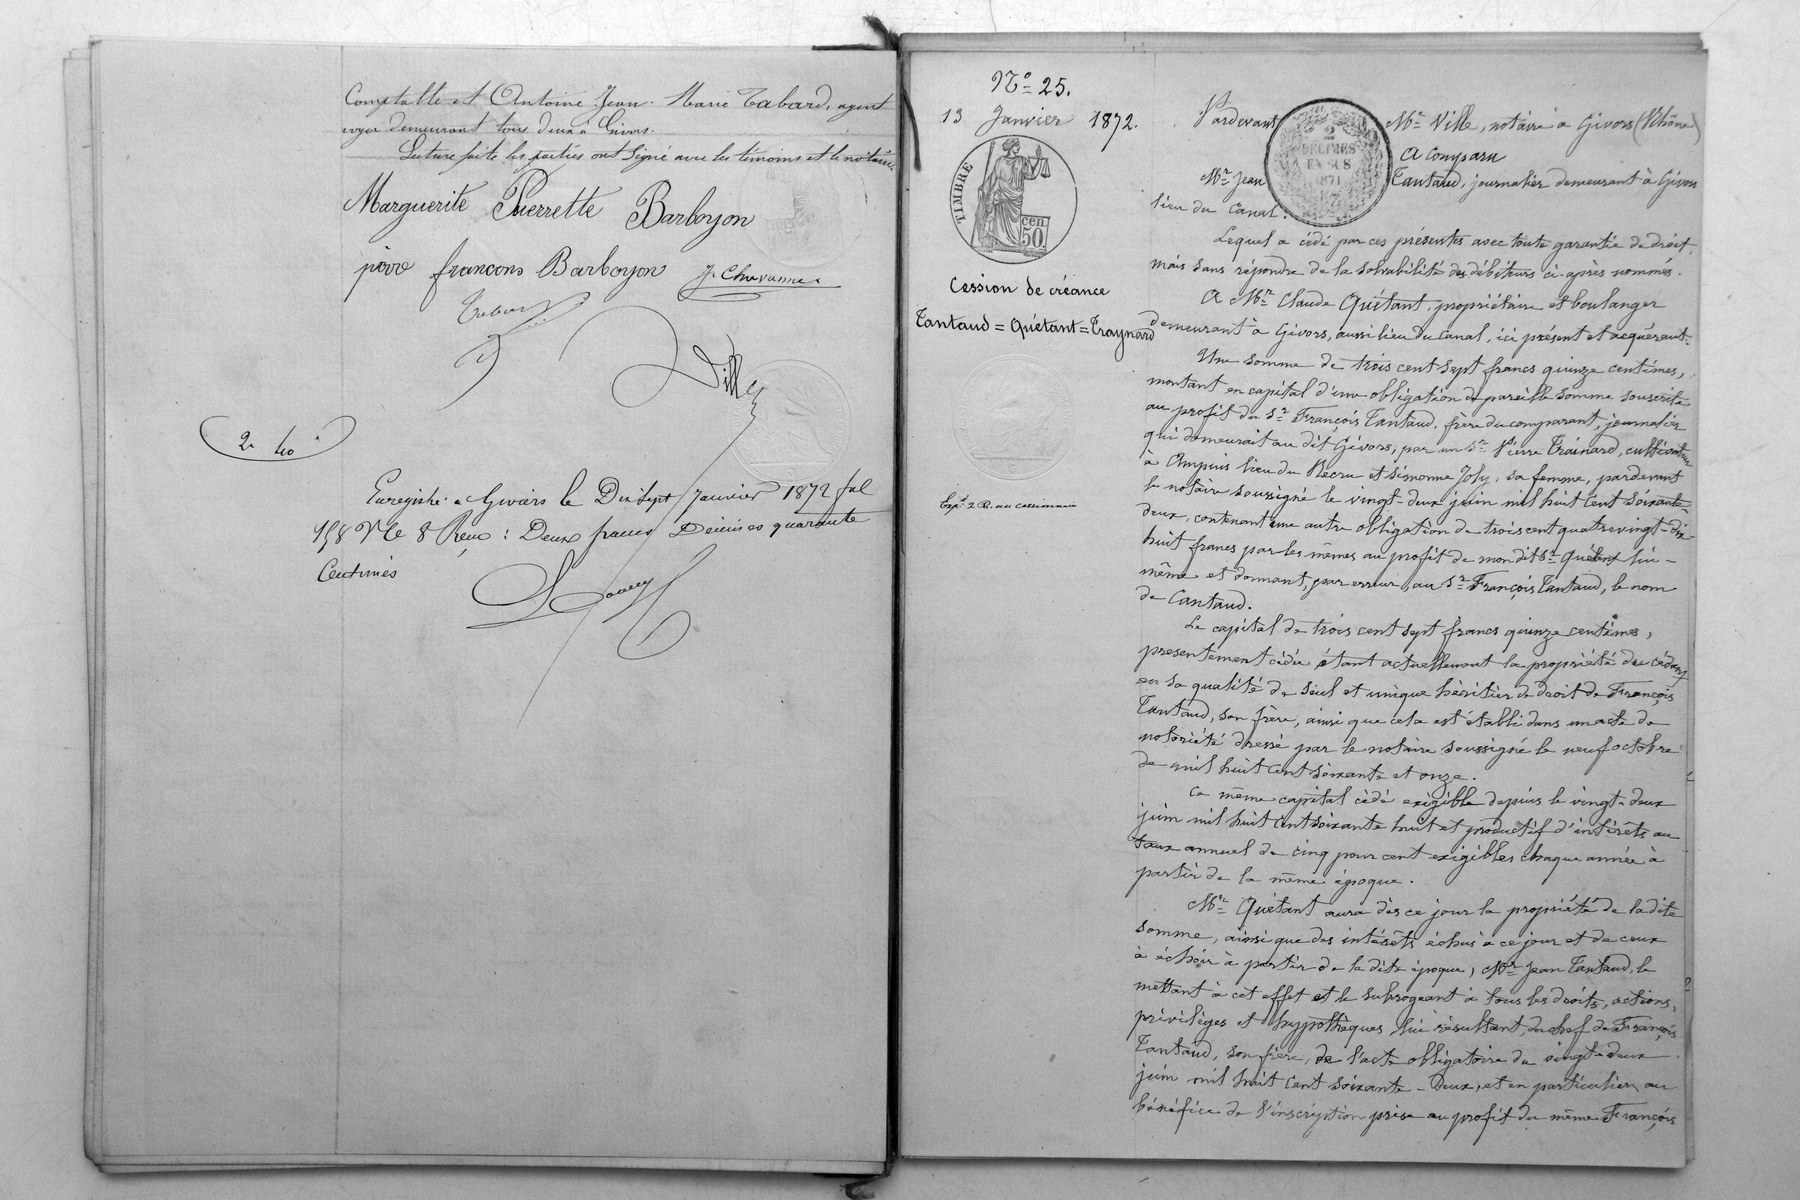 Comptable et Antoine Jean-Marie Tabard, agent
voyer demeurant tous deux à Givors.
Lecture faite les parties ont signé avec les témoins et le notaire.
Marguerite Pierrette Barboyon
pirre françons Barboyon J. Chavanne
Tabard
Ville
2. 40
Enregistré à Givors le Dix Sept Janvier 1872 fol
158 Vº Ce 8 Reçu : Deux francs Décimes quarante
Centimes
Nº 25.
13 Janvier 1872.
TIMBRE
cen
50
Cession de créance
Tantaud = Quétant = Traynard
2
DÉCIMES
EN SUS
1871
Pardevant Mᵉ Ville, notaire à Givors (Rhône)
A Comparu
Mʳ Jean Tantaud, journalier demeurant à Givors
lieu du Canal.
Lequel a cédé par ces présentes avec toute garantie de droit,
mais sans répondre de la solvabilité des débiteurs ci-après nommés.
A Mʳ Claude Quétant, propriétaire et boulanger
demeurant à Givors, aussi lieu du Canal, ici présent et acquérant.
Une somme de trois cent sept francs quinze centimes,
montant en capital d'une obligation de pareille somme souscrite
au profit du Sʳ François Tantaud, frère du comparant, journalier
qui demeurait au dit Givors, par un Sʳ Pierre Trainard, cultivateur
à Ampuis lieu du Recru et Simonne Joly, sa femme, pardevant
le notaire soussigné le vingt-deux juin mil huit cent soixante-
deux, contenant une autre obligation de trois cent quatre vingt-dix-
huit francs par les mêmes au profit de mon dit Sʳ Quétant lui-
même et donnant, par erreur, au Sʳ François Tantaud, le nom
de Cantaud.
Le capital de trois cent sept francs quinze centimes,
presentement cédée étant actuellement la propriété du cédant
en sa qualité de seul et unique héritier de droit de François
Tantaud, son frère, ainsi que cela est établi dans un acte de
notoriété dressé par le notaire soussigné le neuf octobre
de mil huit cent soixante et onze.
Ce même capital cédé exigible depuis le vingt-deux
juin mil huit cent soixante huit et productif d'intérêts au
taux annuel de cinq pour cent exigibles chaque année à
partir de la même époque.
Mʳ Quétant aura dès ce jour la propriété de la dite
somme, ainsi que des intérêts échus à ce jour et de ceux
à échoir à partir de la dite époque, Mʳ Jean Tantaud, le
mettant à cet effet et le subrogeant à tous les droits, actions,
privilèges et hypothèques, lui résultant, du chef de François
Tantaud, son frère, de l'acte obligatoire du vingt-deux
juin mil huit cent soixante-Deux, et en particulier, au
bénéfice de l'inscription prise au profit du même François